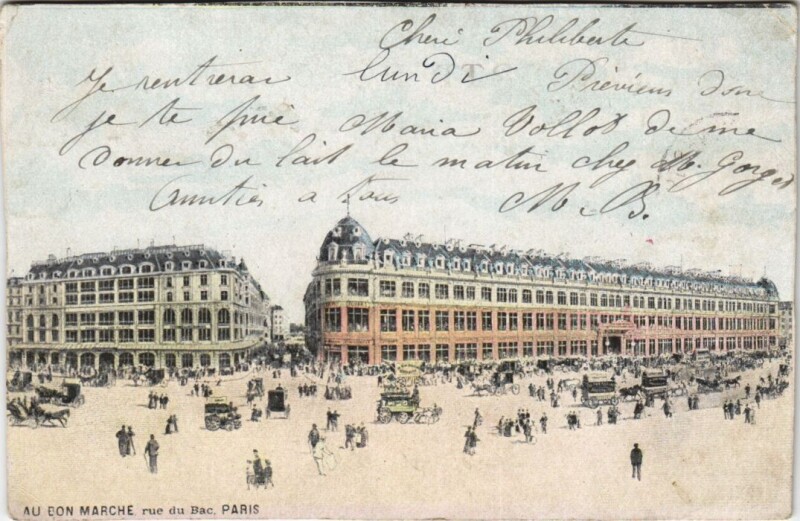 Cheri Philiberte
Je rentrerai lundi Préviens donc
je te prie Maria Vollot de me
donner du lait le matin chez M. Gorget
Amitiés a tous M. B.
AU BON MARCHE, rue du Bac, PARIS